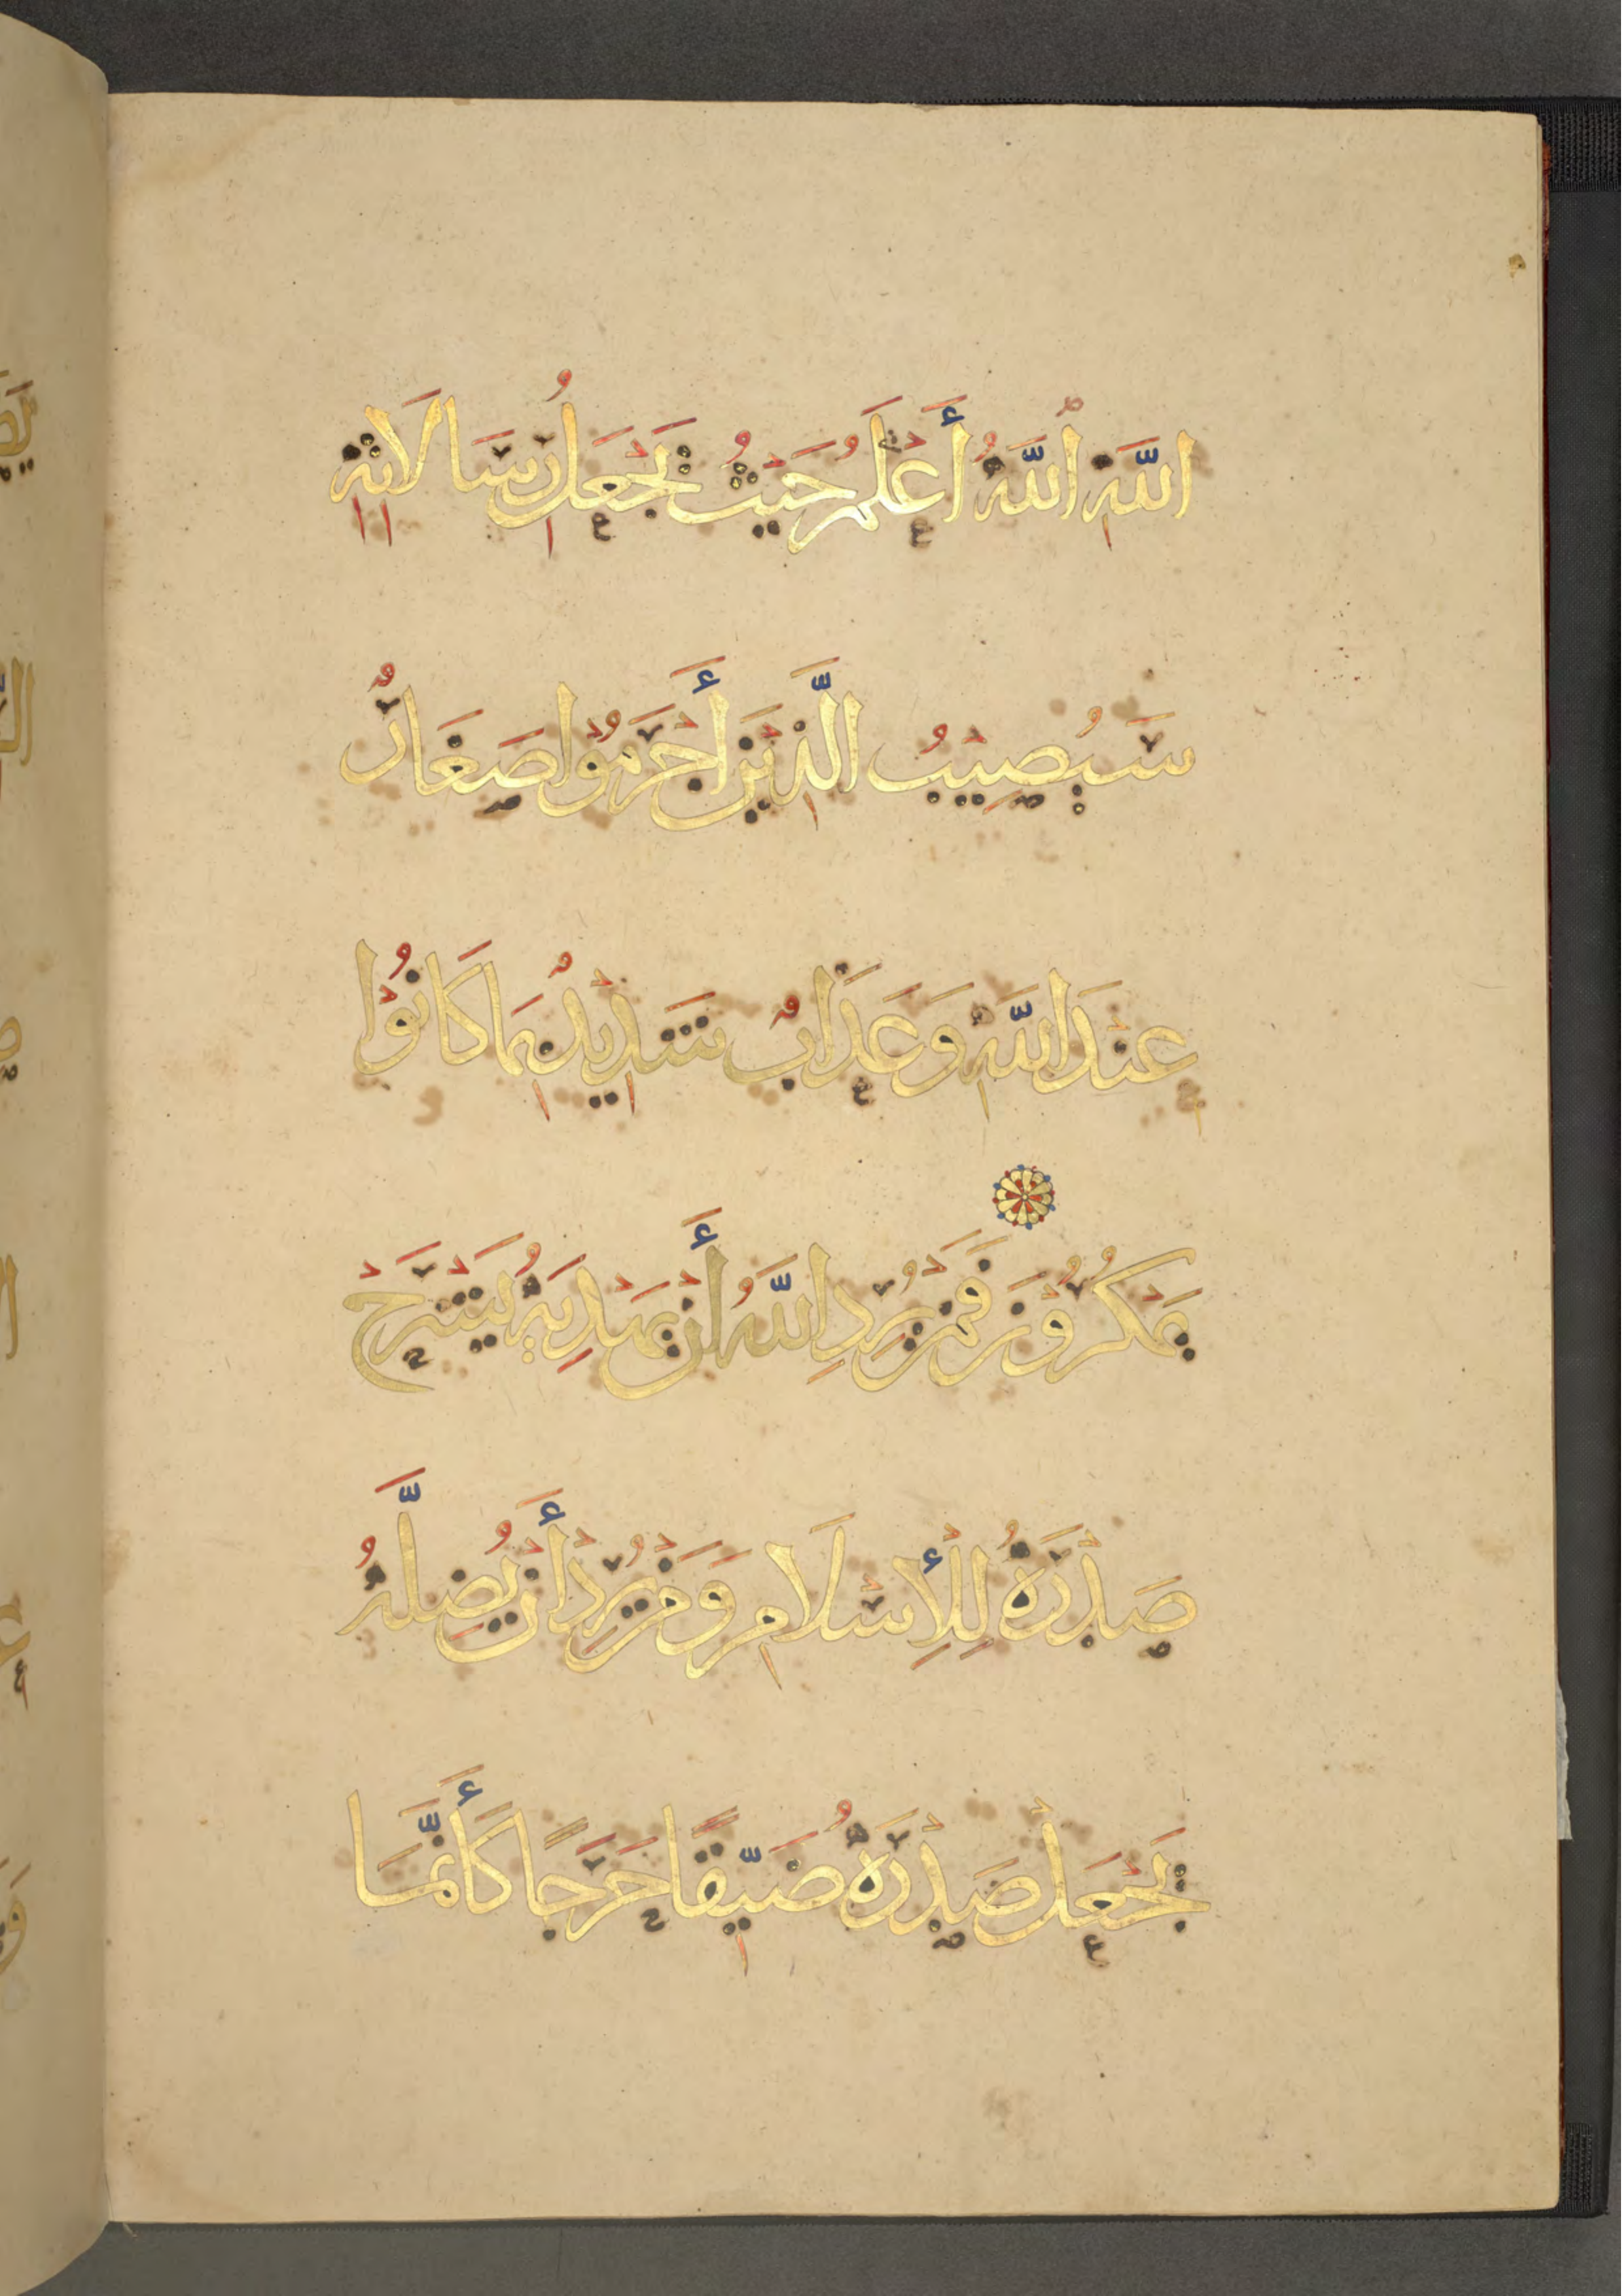 اللَّهِ اللَّهُ أَعْلَمُ حَيْثُ يَجْعَلُ رِسَالَاتِهِ
سَيُصِيْبُ الَّذِيْنَ أَجْرَمُوْا صَغَارٌ
عِنْدَ اللَّهِ وَعَذَابٌ شَدِيْدٌ بِمَا كَانُوْا
يَمْكُرُوْنَ فَمَنْ يُرِدِ اللَّهُ أَنْ يَهْدِيَهُ يَشْرَحْ
صَدْرَهُ لِلْإِسْلَامِ وَمَنْ يُرِدْ أَنْ يُضِلَّهُ
يَجْعَلْ صَدْرَهُ ضَيِّقًا حَرَجًا كَأَنَّمَا